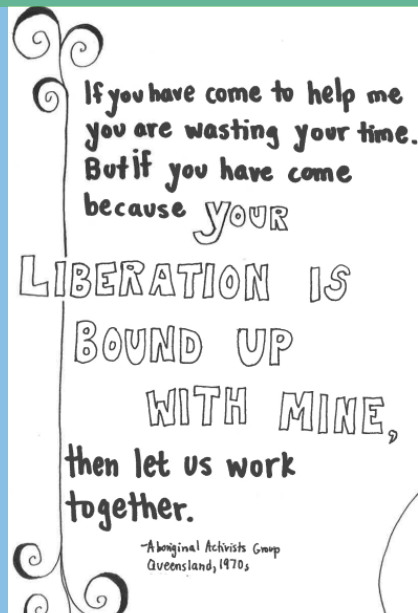 If you have come to help me
you are wasting your time.
But if you have come
because YOUR
LIBERATION IS
BOUND UP
WITH MINE,
then let us work
together.
-Aboriginal Activists Group
Queensland, 1970s